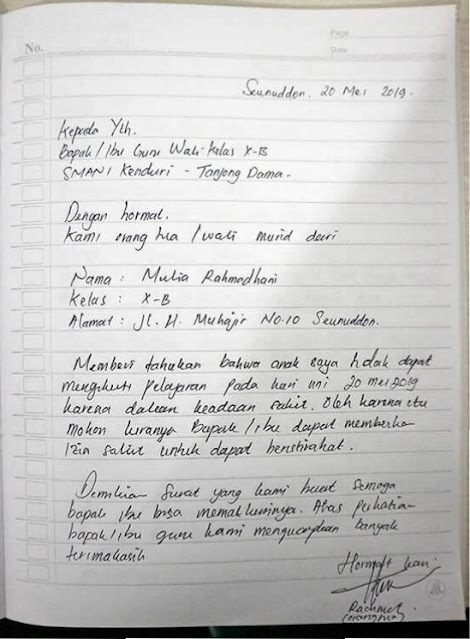 No.
Page
Date
Seunuddon, 20 Mei 2019.
Kepada Yth.
Bapak/Ibu Guru Wali-Kelas X-B
SMAN 1 Kenduri - Tanjong Dama.
Dengan hormat.
Kami orang tua/wali murid dari
Nama : Mulia Rahmadhani
Kelas : X-B
Alamat : Jl. H. Muhajir No.10 Seunuddon.
Memberi tahukan bahwa anak saya tidak dapat
mengikuti pelajaran pada hari ini 20 mei 2019
karena dalam keadaan sakit. Oleh karena itu
mohon kiranya Bapak/ibu dapat memberikan
Izin sakit untuk dapat beristirahat.
Demikian surat yang kami buat semoga
bapak ibu bisa memakluminya. Atas perhatian
bapak/ibu guru kami mengucapkan banyak
terimakasih
Hormat kami
Rachmat
(orangtua)